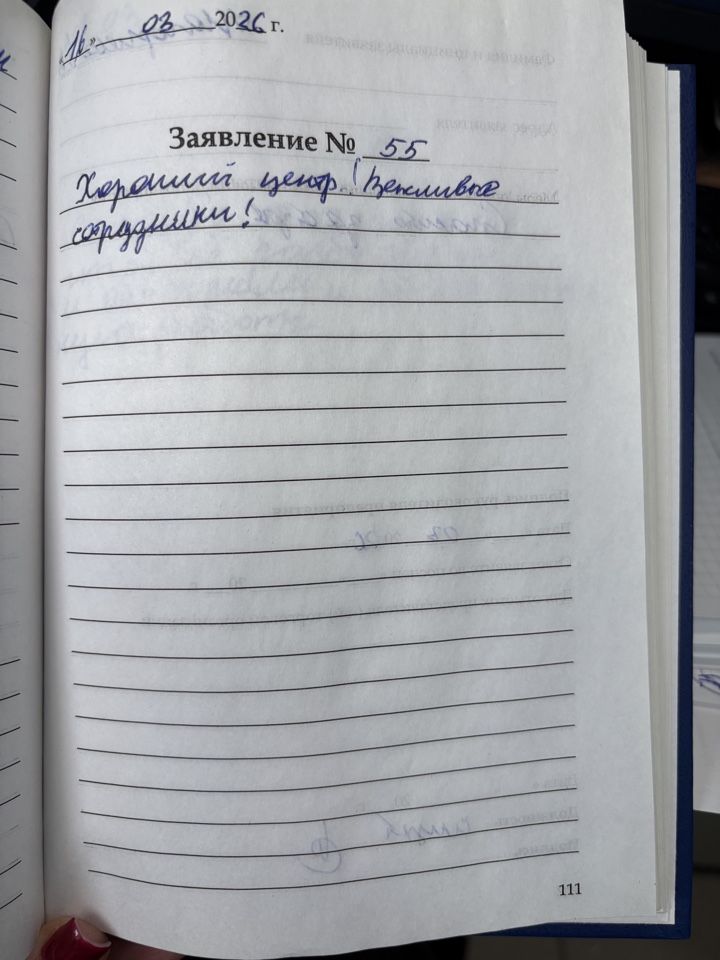 «16» 03 2026 г.
Заявление № 55
Хороший центр! Вежливые
сотрудники!
111